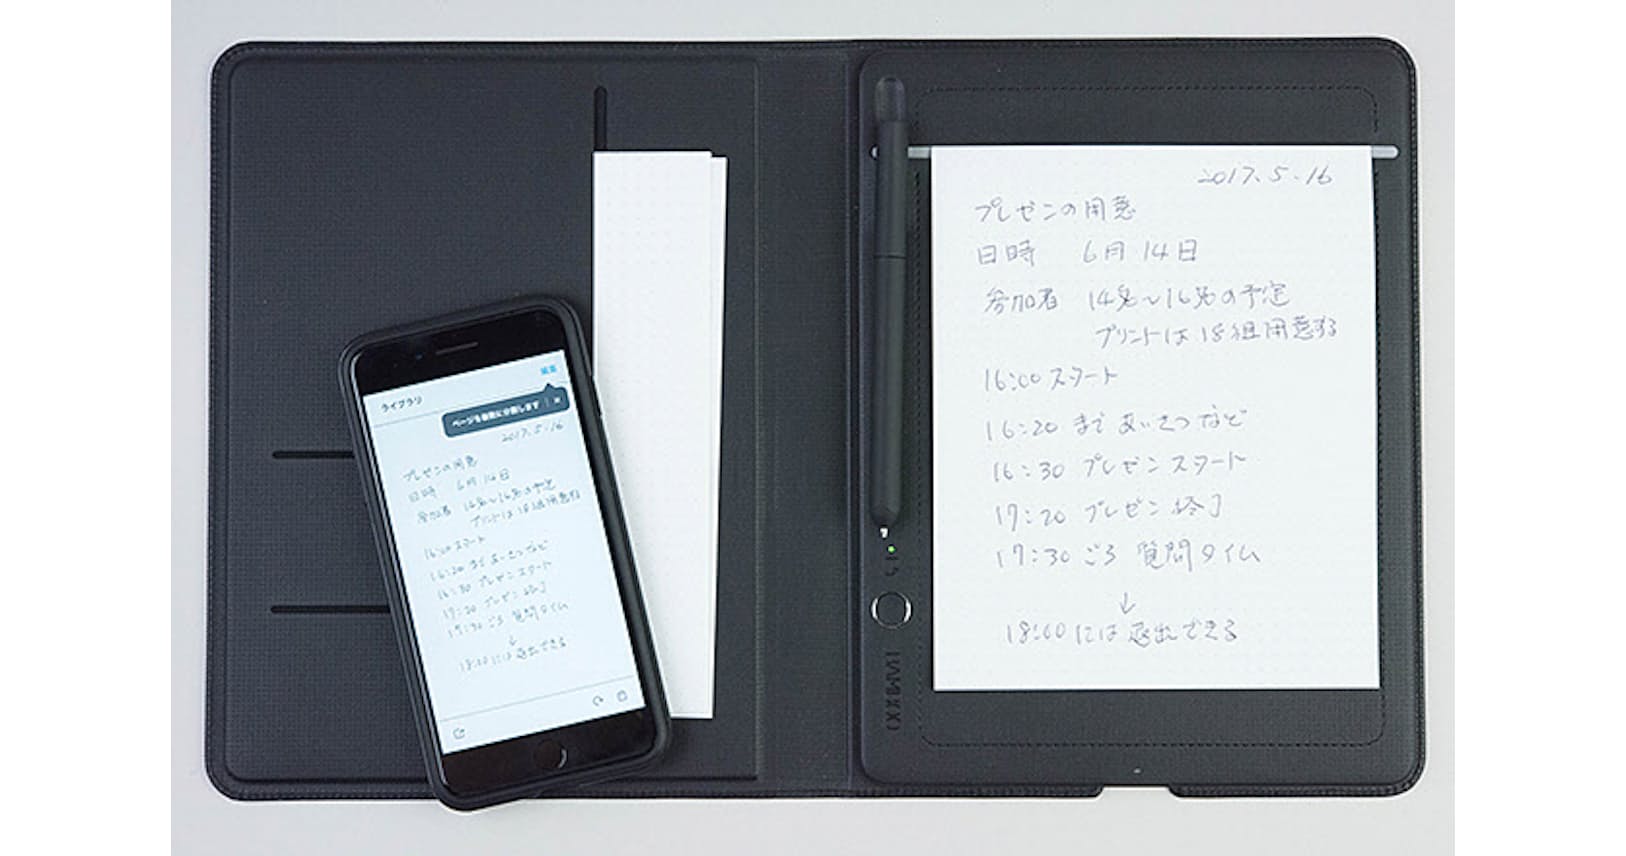 2017.5.16
プレゼンの用意
日時 6月14日
参加者 14名〜16名の予定
プリントは18組用意する
16:00 スタート
16:20 まで あいさつなど
16:30 プレゼンスタート
17:20 プレゼン終了
17:30 ごろ 質問タイム
↓
18:00には退出できる
wacom
編集
ライブラリ
ページを自動に分割します ×
2017.5.16
プレゼンの用意
日時 6月14日
参加者 14名〜16名の予定
プリントは18組用意する
16:00 スタート
16:20 まで あいさつなど
16:30 プレゼンスタート
17:20 プレゼン終了
17:30 ごろ 質問タイム
↓
18:00には退出できる